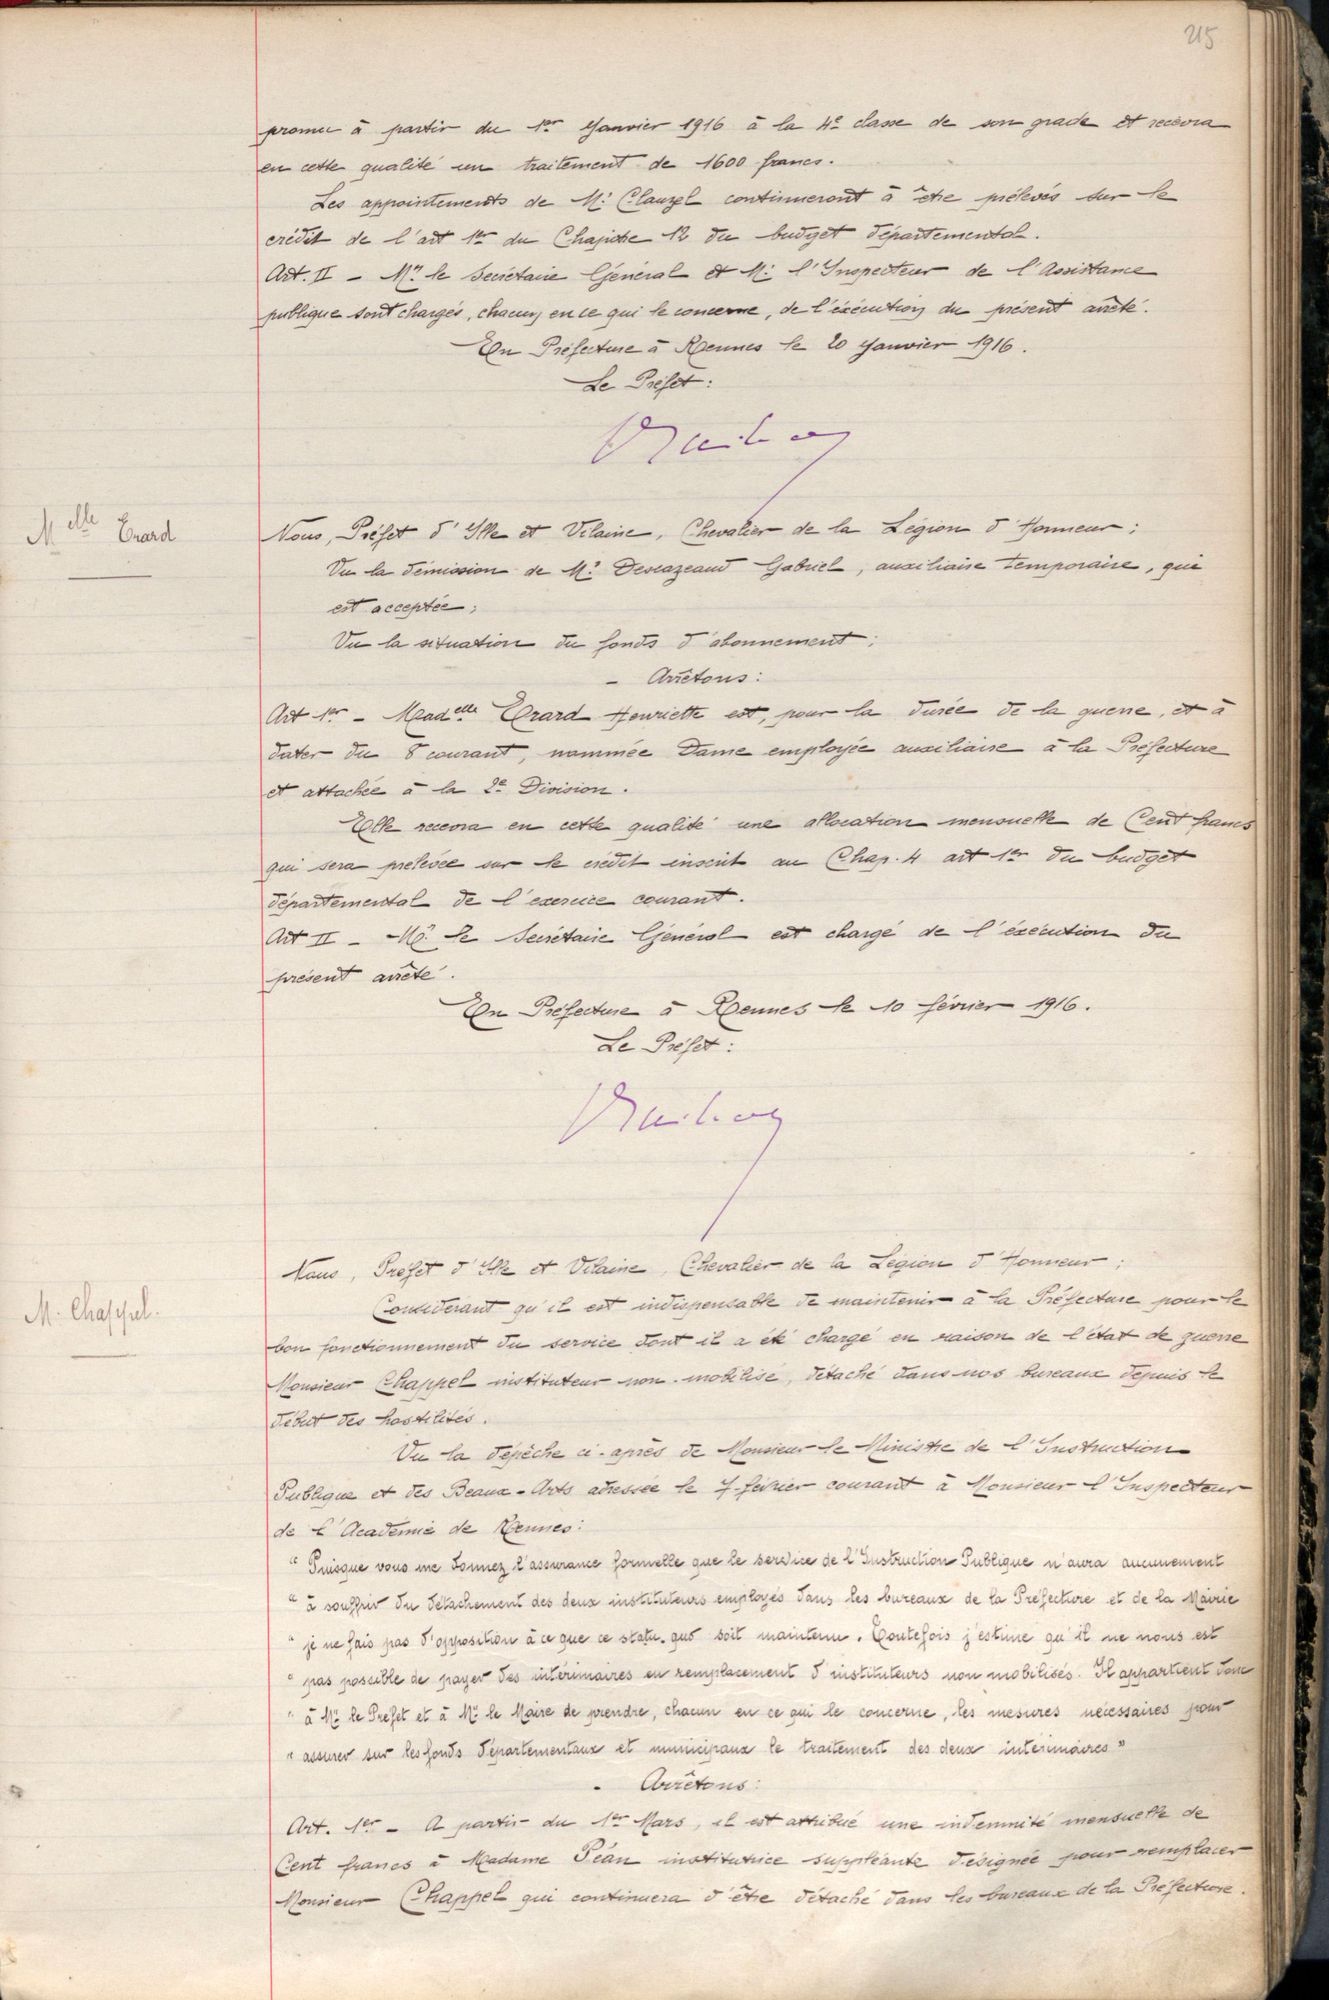 215
promu à partir du 1er Janvier 1916 à la 4e classe de son grade et recevra
en cette qualité un traitement de 1600 francs.
Les appointements de Mr Clauzel continueront à être prélevés sur le
crédit de l'art 1er du Chapitre 12 du budget départemental.
Art. II - Mr le Secrétaire Général et Mr l'Inspecteur de l'Assistance
publique sont chargés, chacun en ce qui le concerne, de l'éxécution du présent arrêté.
En Préfecture à Rennes le 20 Janvier 1916.
Le Préfet:
Melle Erard
Nous, Préfet d'Ille et Vilaine, Chevalier de la Légion d'Honneur;
Vu la démission de Mr Descazeaud Gabriel, auxiliaire temporaire, qui
est acceptée;
Vu la situation du fonds d'abonnement;
- Arrêtons:
Art 1er - Madelle Erard Henriette est, pour la durée de la guerre, et à
dater du 8 courant, nommée Dame employée auxiliaire à la Préfecture
et attachée à la 2e Division.
Elle recevra en cette qualité une allocation mensuelle de Cent francs
qui sera prélevée sur le crédit inscrit au Chap. 4 art 1er du budget
départemental de l'exercice courant.
Art II - Mr le Secrétaire Général est chargé de l'éxécution du
présent arrêté.
En Préfecture à Rennes le 10 février 1916.
Le Préfet:
M. Chappel.
Nous, Préfet d'Ille et Vilaine, Chevalier de la Légion d'Honneur;
Considérant qu'il est indispensable de maintenir à la Préfecture pour le
bon fonctionnement du service dont il a été chargé en raison de l'état de guerre
Monsieur Chappel instituteur non-mobilisé, détaché dans nos bureaux depuis le
début des hostilités.
Vu la dépêche ci-après de Monsieur le Ministre de l'Instruction
Publique et des Beaux-Arts adressée le 7 février courant à Monsieur l'Inspecteur
de l'Académie de Rennes:
" Puisque vous me donnez l'assurance formelle que le service de l'Instruction Publique n'aura aucunement
" à souffrir du détachement des deux instituteurs employés dans les bureaux de la Préfecture et de la Mairie
" je ne fais pas d'opposition à ce que ce statu-quo soit maintenu. Toutefois j'estime qu'il ne nous est
" pas possible de payer des intérimaires en remplacement d'instituteurs non mobilisés. Il appartient donc
" à Mr le Préfet et à Mr le Maire de prendre, chacun en ce qui le concerne, les mesures nécessaires pour
" assurer sur les fonds départementaux et municipaux le traitement des deux intérimaires"
- Arrêtons:
Art. 1er - A partir du 1er Mars, il est attribué une indemnité mensuelle de
Cent francs à Madame Péan institutrice suppléante désignée pour remplacer
Monsieur Chappel qui continuera d'être détaché dans les bureaux de la Préfecture.